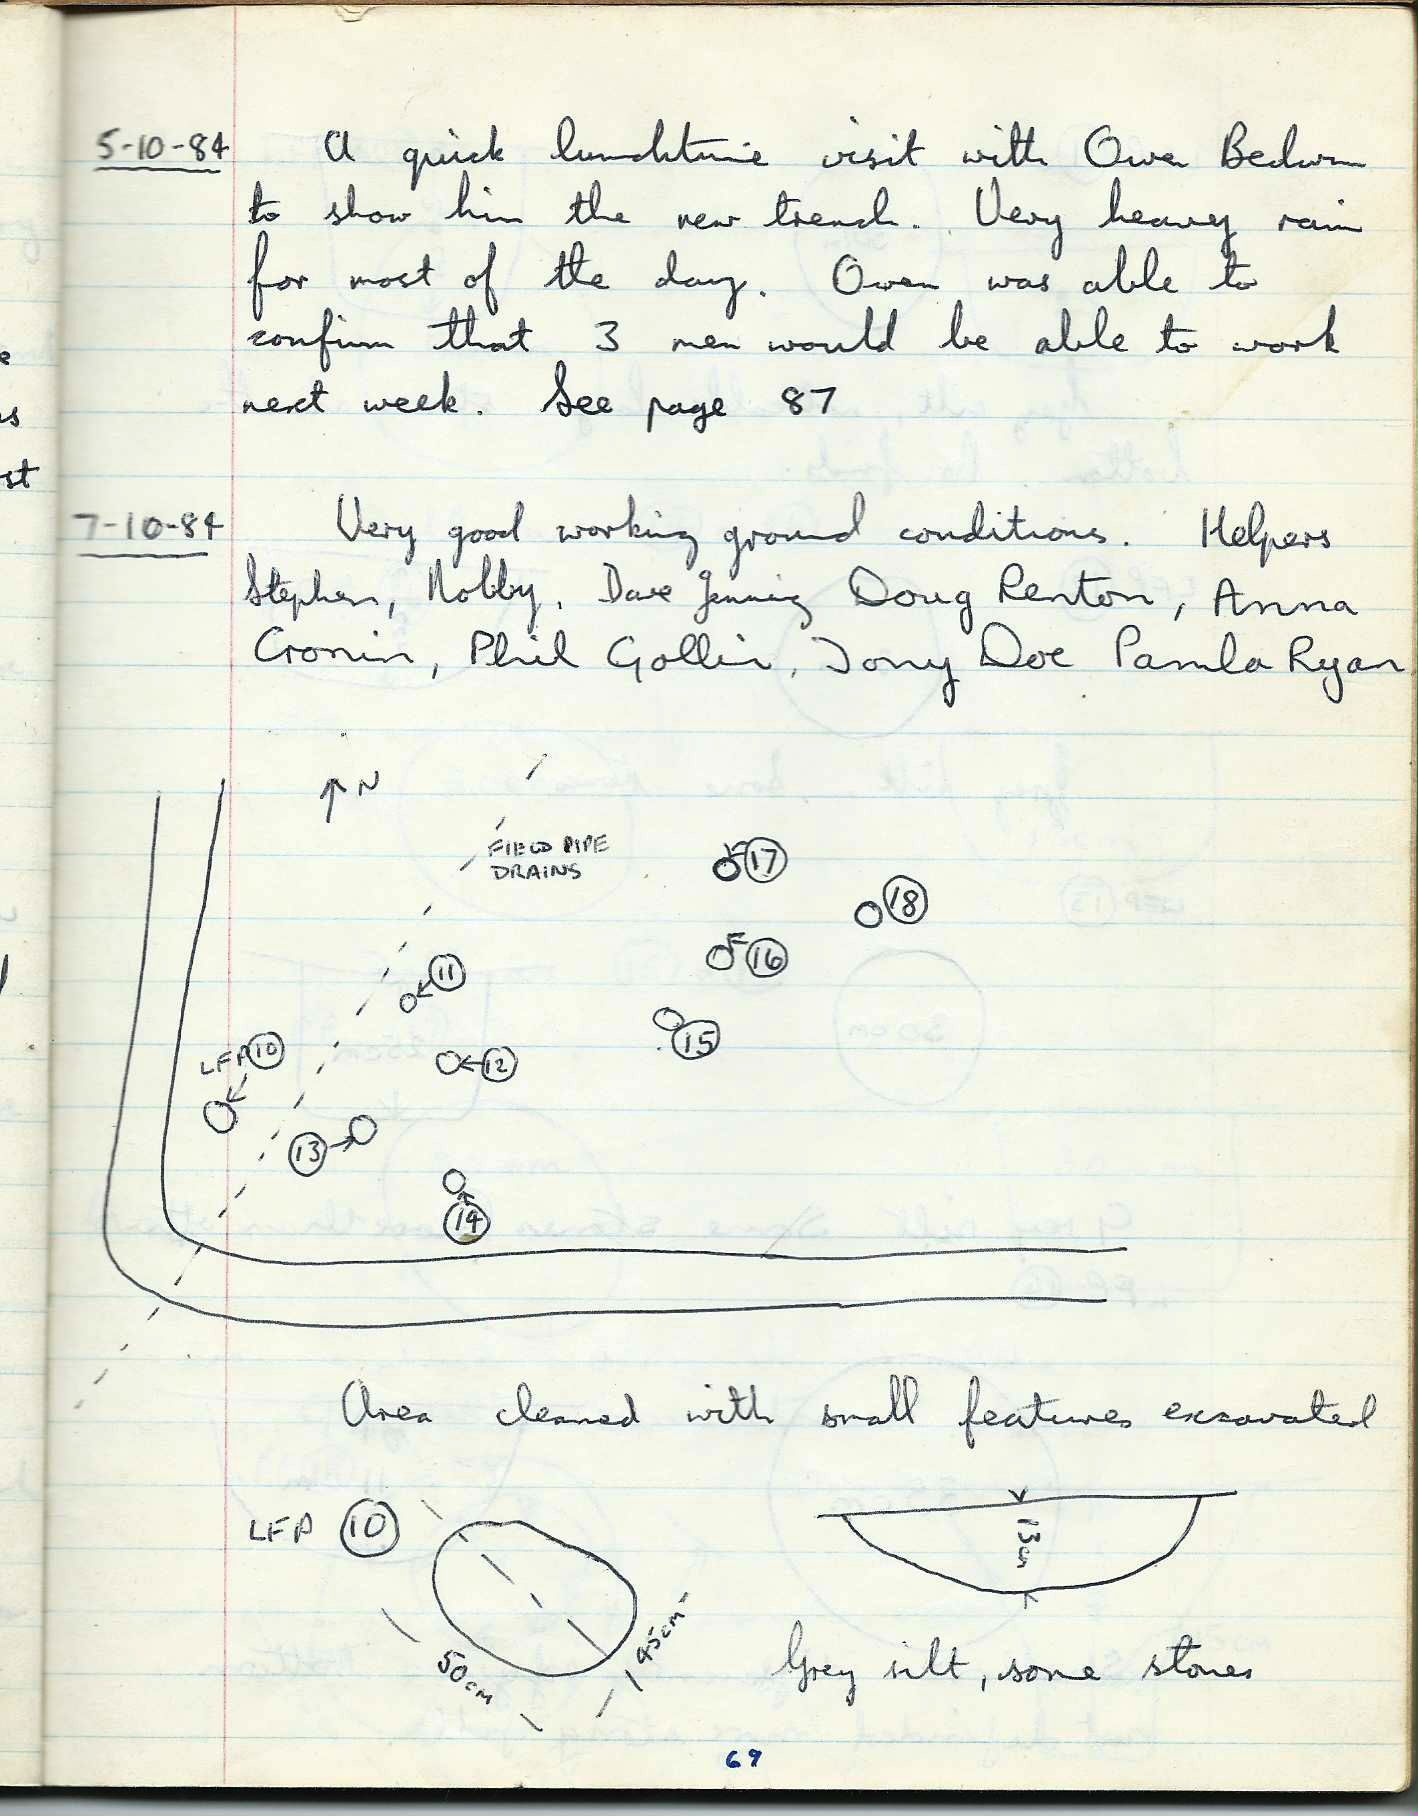 5-10-84 A quick lunchtime visit with Owen Bedwin
to show him the new trench. Very heavy rain
for most of the day. Owen was able to
confirm that 3 men would be able to work
next week. See page 87
7-10-84 Very good working ground conditions. Helpers
Stephen, Nobby, Dave Jenning Doug Renton, Anna
Cronin, Phil Gollin, Tony Doe Pamla Ryan
N
FIELD PIPE
DRAINS
17
18
16
11
15
LFP 10
12
13
14
Area cleaned with small features excavated
LFP 10
13cm
50cm
45cm
Grey silt, some stones
69